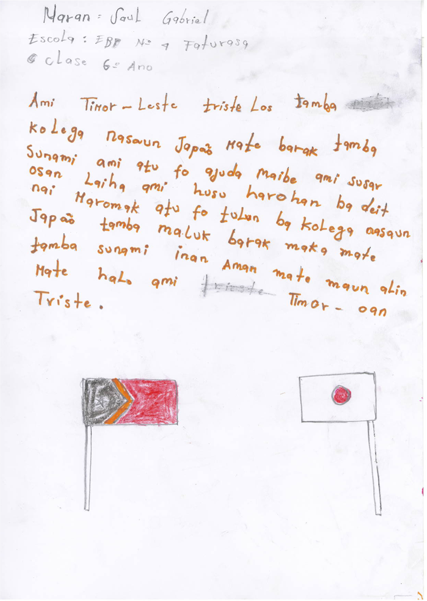 Naran : Saul Gabriel
Escola : EBF No 4 Faturasa
Clase 6º Ano
Ami Timor-Leste triste Los tamba
kolega nasaun Japaõ mate barak tamba
Sunami ami atu fo ajuda maibe ami susar
osan Laiha ami husu harohan ba deit
nai Maromak atu fo tulun ba kolega nasaun
Japaõ tamba maluk barak maka mate
tamba sunami inan Aman mate maun alin
Mate halo ami triste Timor-oan
Triste.